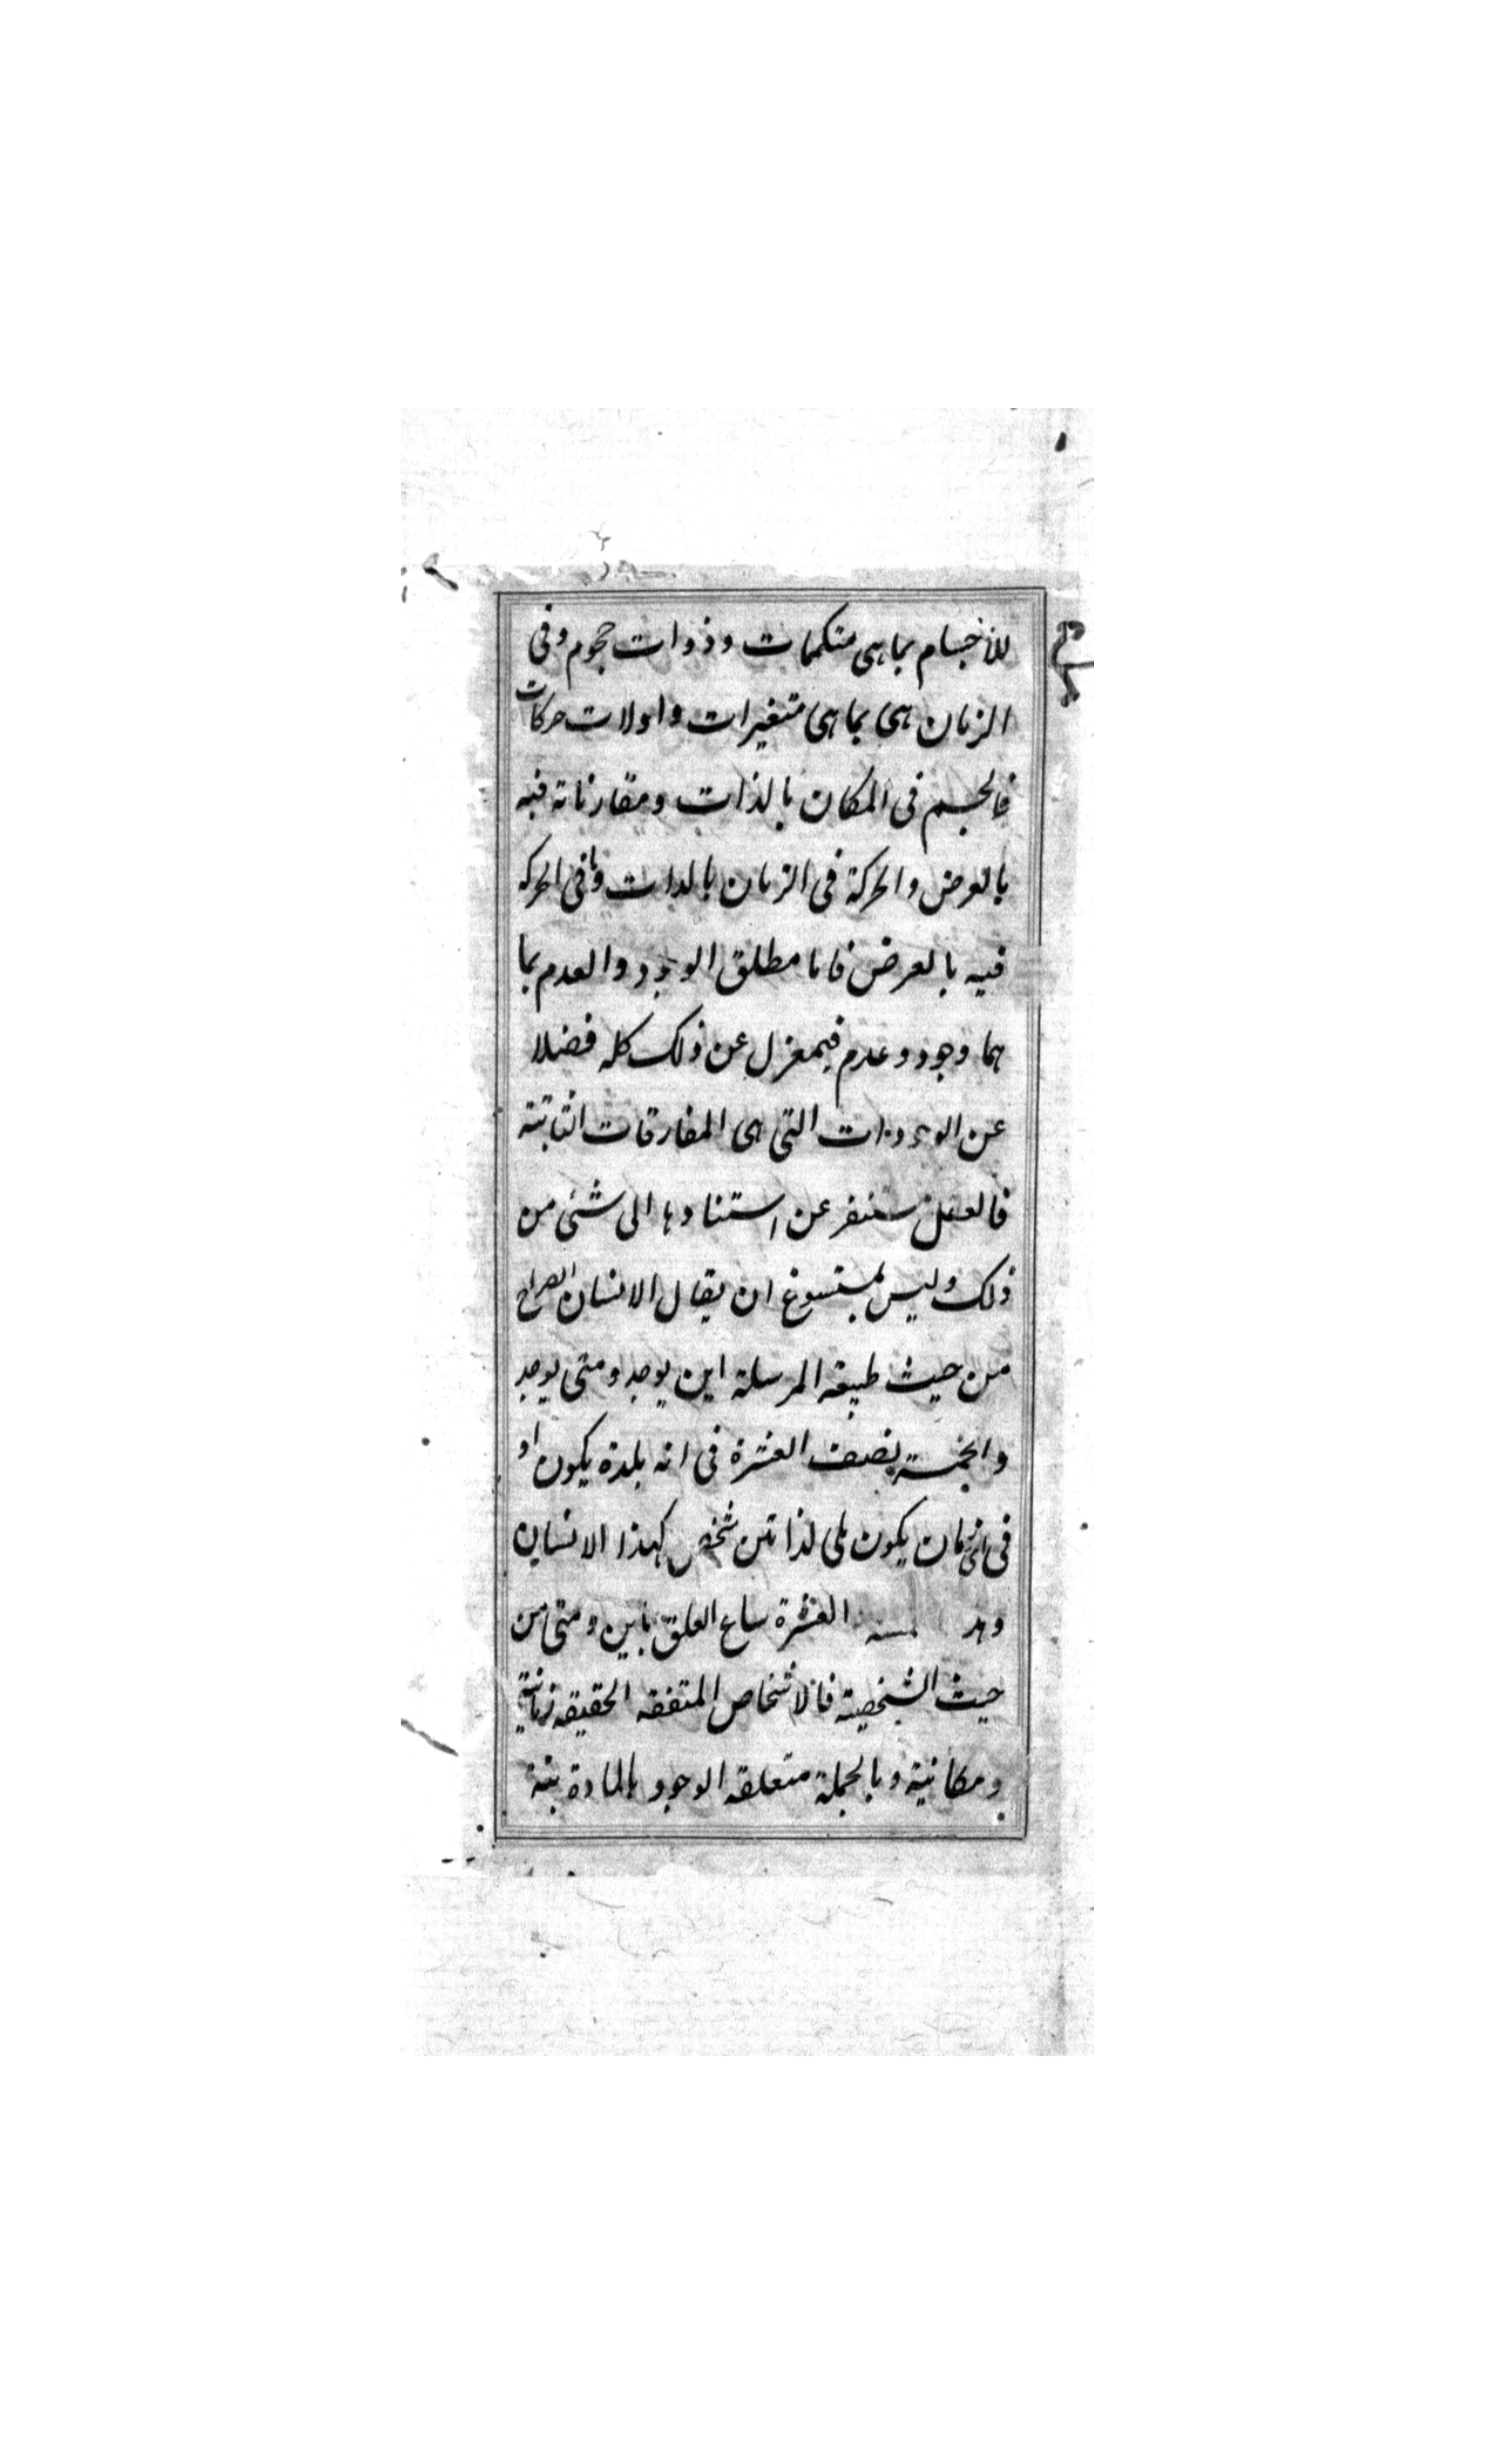 للأجسام بما هى متكممات وذوات حجوم وفى
الزمان هى بما هى متغيرات واولات حركات
فالجسم فى المكان بالذات ومقارناته فيه
بالعرض والحركة فى الزمان بالذات وما فى الحركه
فيه بالعرض فاما مطلق الوجود والعدم بما
هما وجود وعدم فبمعزل عن ذلك كله فضلا
عن الوجودات التى هى المفارقات الثابتة
فالعقل مستنفر عن استنادها الى شئ من
ذلك وليس بمستسوغ ان يقال الانسان الصراح
من حيث طبيعته المرسلة اين يوجد ومتى يوجد
والخمسة نصف العشرة فى اية بلدة يكون او
فى اى زمان يكون بلى اذا تعين شخص كهذا الانسان
العشرة ساغ العلق باين ومتى من
حيث الشخصية فالاشخاص المتفقه الحقيقه زمانية
ومكانية وبالجملة متعلقه الوجود بالمادة بتة